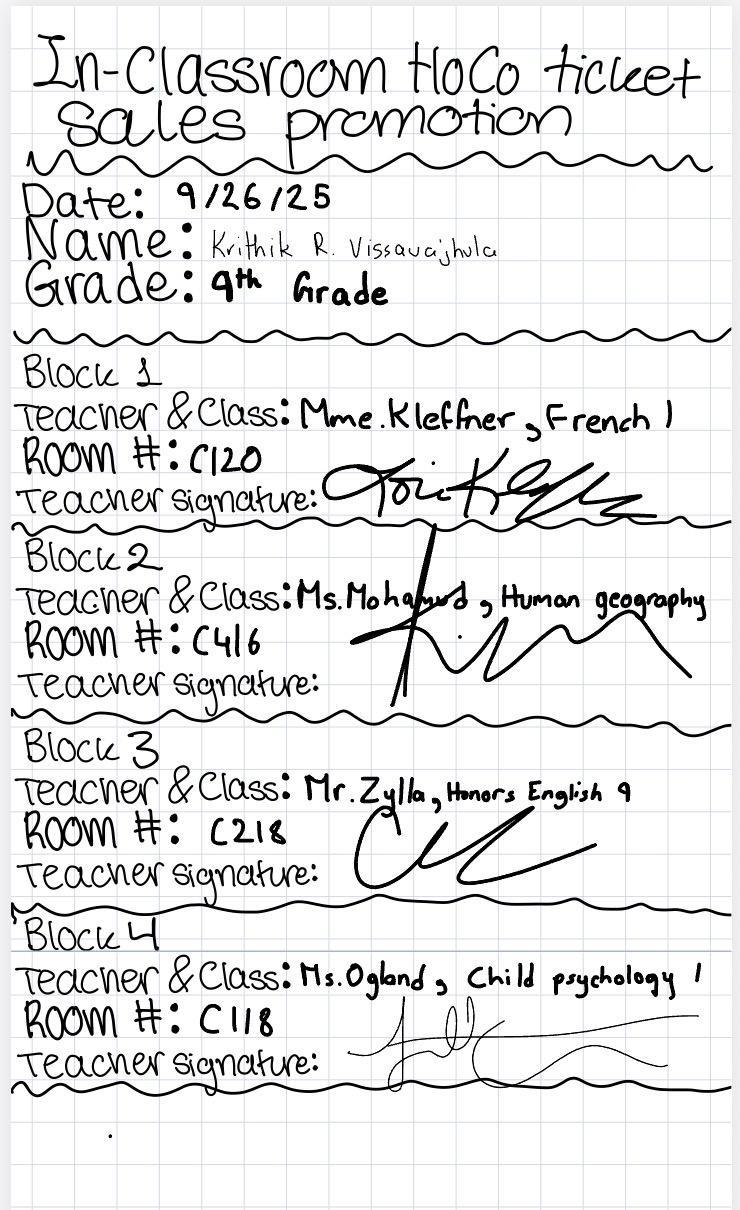 In-Classroom HoCo ticket
sales promotion
Date: 9/26/25
Name: Krithik R. Vissavajhula
Grade: 9th Grade
Block 1
Teacher & Class: Mme. Kleffner, French 1
Room #: C120
Teacher signature:
Block 2
Teacher & Class: Ms. Mohamud, Human geography
Room #: C416
Teacher signature:
Block 3
Teacher & Class: Mr. Zylla, Honors English 9
Room #: C218
Teacher signature:
Block 4
Teacher & Class: Ms. Ogland, Child psychology 1
Room #: C118
Teacher signature: